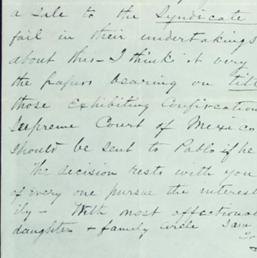 a Sale to the Syndicate
fail in their undertakings
about this - I think it very
the papers bearing on
those exhibiting Confirmation
Supreme Court of Mexico
should be sent to Pablo if he
The decision rests with you
of every one pursue the interest
ily - With most affectionat
daughter & family circle I am